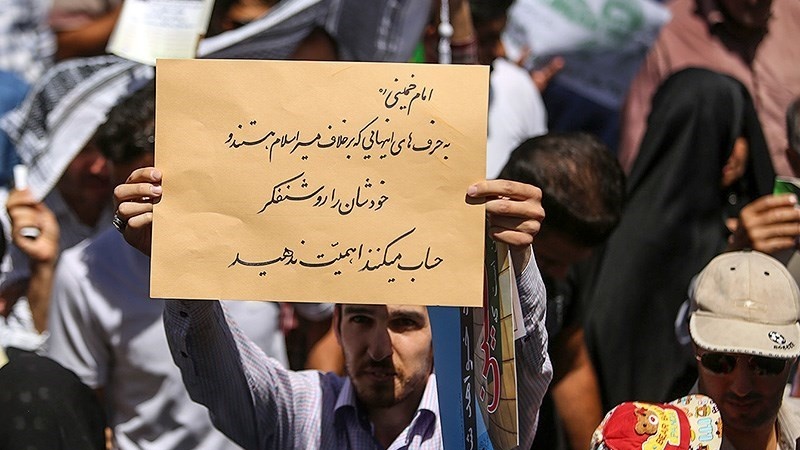 امام خمینی ره
به حرف های اینهایی که برخلاف مسیر اسلام هستند و
خودشان را روشنفکر
حساب میکنند اهمیّت ندهید